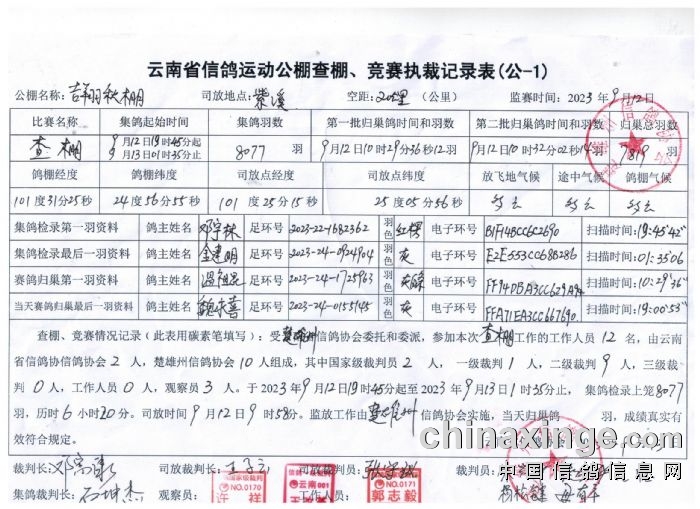 云南省信鸽运动公棚查棚、竞赛执裁记录表(公-1)
公棚名称:吉翔秋棚 司放地点:紫溪 空距: (公里) 监赛时间:2023年9月12日
比赛名称 集鸽起始时间 集鸽羽数 第一批归巢鸽时间和羽数 第二批归巢鸽时间和羽数 归巢总羽数
查棚 9月12日19时45分起 9月13日01时35分止 8077羽 9月12日10时29分36秒12羽 9月12日10时32分02秒 羽 7819羽
鸽棚经度 鸽棚纬度 司放点经度 司放点纬度 放飞地气候 途中气候 鸽棚气候
101度31分25秒 24度56分55秒 101度25分15秒 25度05分56秒
集鸽检录第一羽资料 鸽主姓名 邓宇林 足环号 2023-22-1682362 羽色 红楞 电子环号 B1F14BCC6C2690 扫描时间:19:45'42"
集鸽检录最后一羽资料 鸽主姓名 金建明 足环号 2023-24-0924904 羽色 灰 电子环号 E2E553CC68B286 扫描时间:01:35'06
赛鸽归巢第一羽资料 鸽主姓名 足环号 2023-24-1725963 羽色 电子环号 FF94DBA3CC629A94 扫描时间:10:29'36"
当天赛鸽归巢最后一羽资料 鸽主姓名 魏永喜 足环号 2023-24-0155945 羽色 灰 电子环号 FFA71EA3CC667690 扫描时间:19:00'53"
查棚、竞赛情况记录(此表用碳素笔填写):受楚雄州信鸽协会委托和委派,参加本次查棚工作的工作人员12名,由云南
省信鸽协信鸽协会2人,楚雄州信鸽协会10人组成,其中国家级裁判员2人,一级裁判1人,二级裁判9人,三级裁
判0人,工作人员0人,观察员3人。于2023年9月12日19时45分起至2023年9月13日01时35分止,集鸽检录上笼8077
羽,历时6小时20分。司放时间9月12日9时58分。监放工作由楚雄州信鸽协会实施,当天归巢鸽 羽,成绩真实有
效符合规定。
chinaxinge.com
中国信鸽信息网
裁判长: 司放裁判长: 裁判员:张 监放裁判员:
集鸽裁判长:石坤杰 观察员: 工作人员:
国家级裁判
NO.0170
许祥
云南001
NO.0171
郭志毅